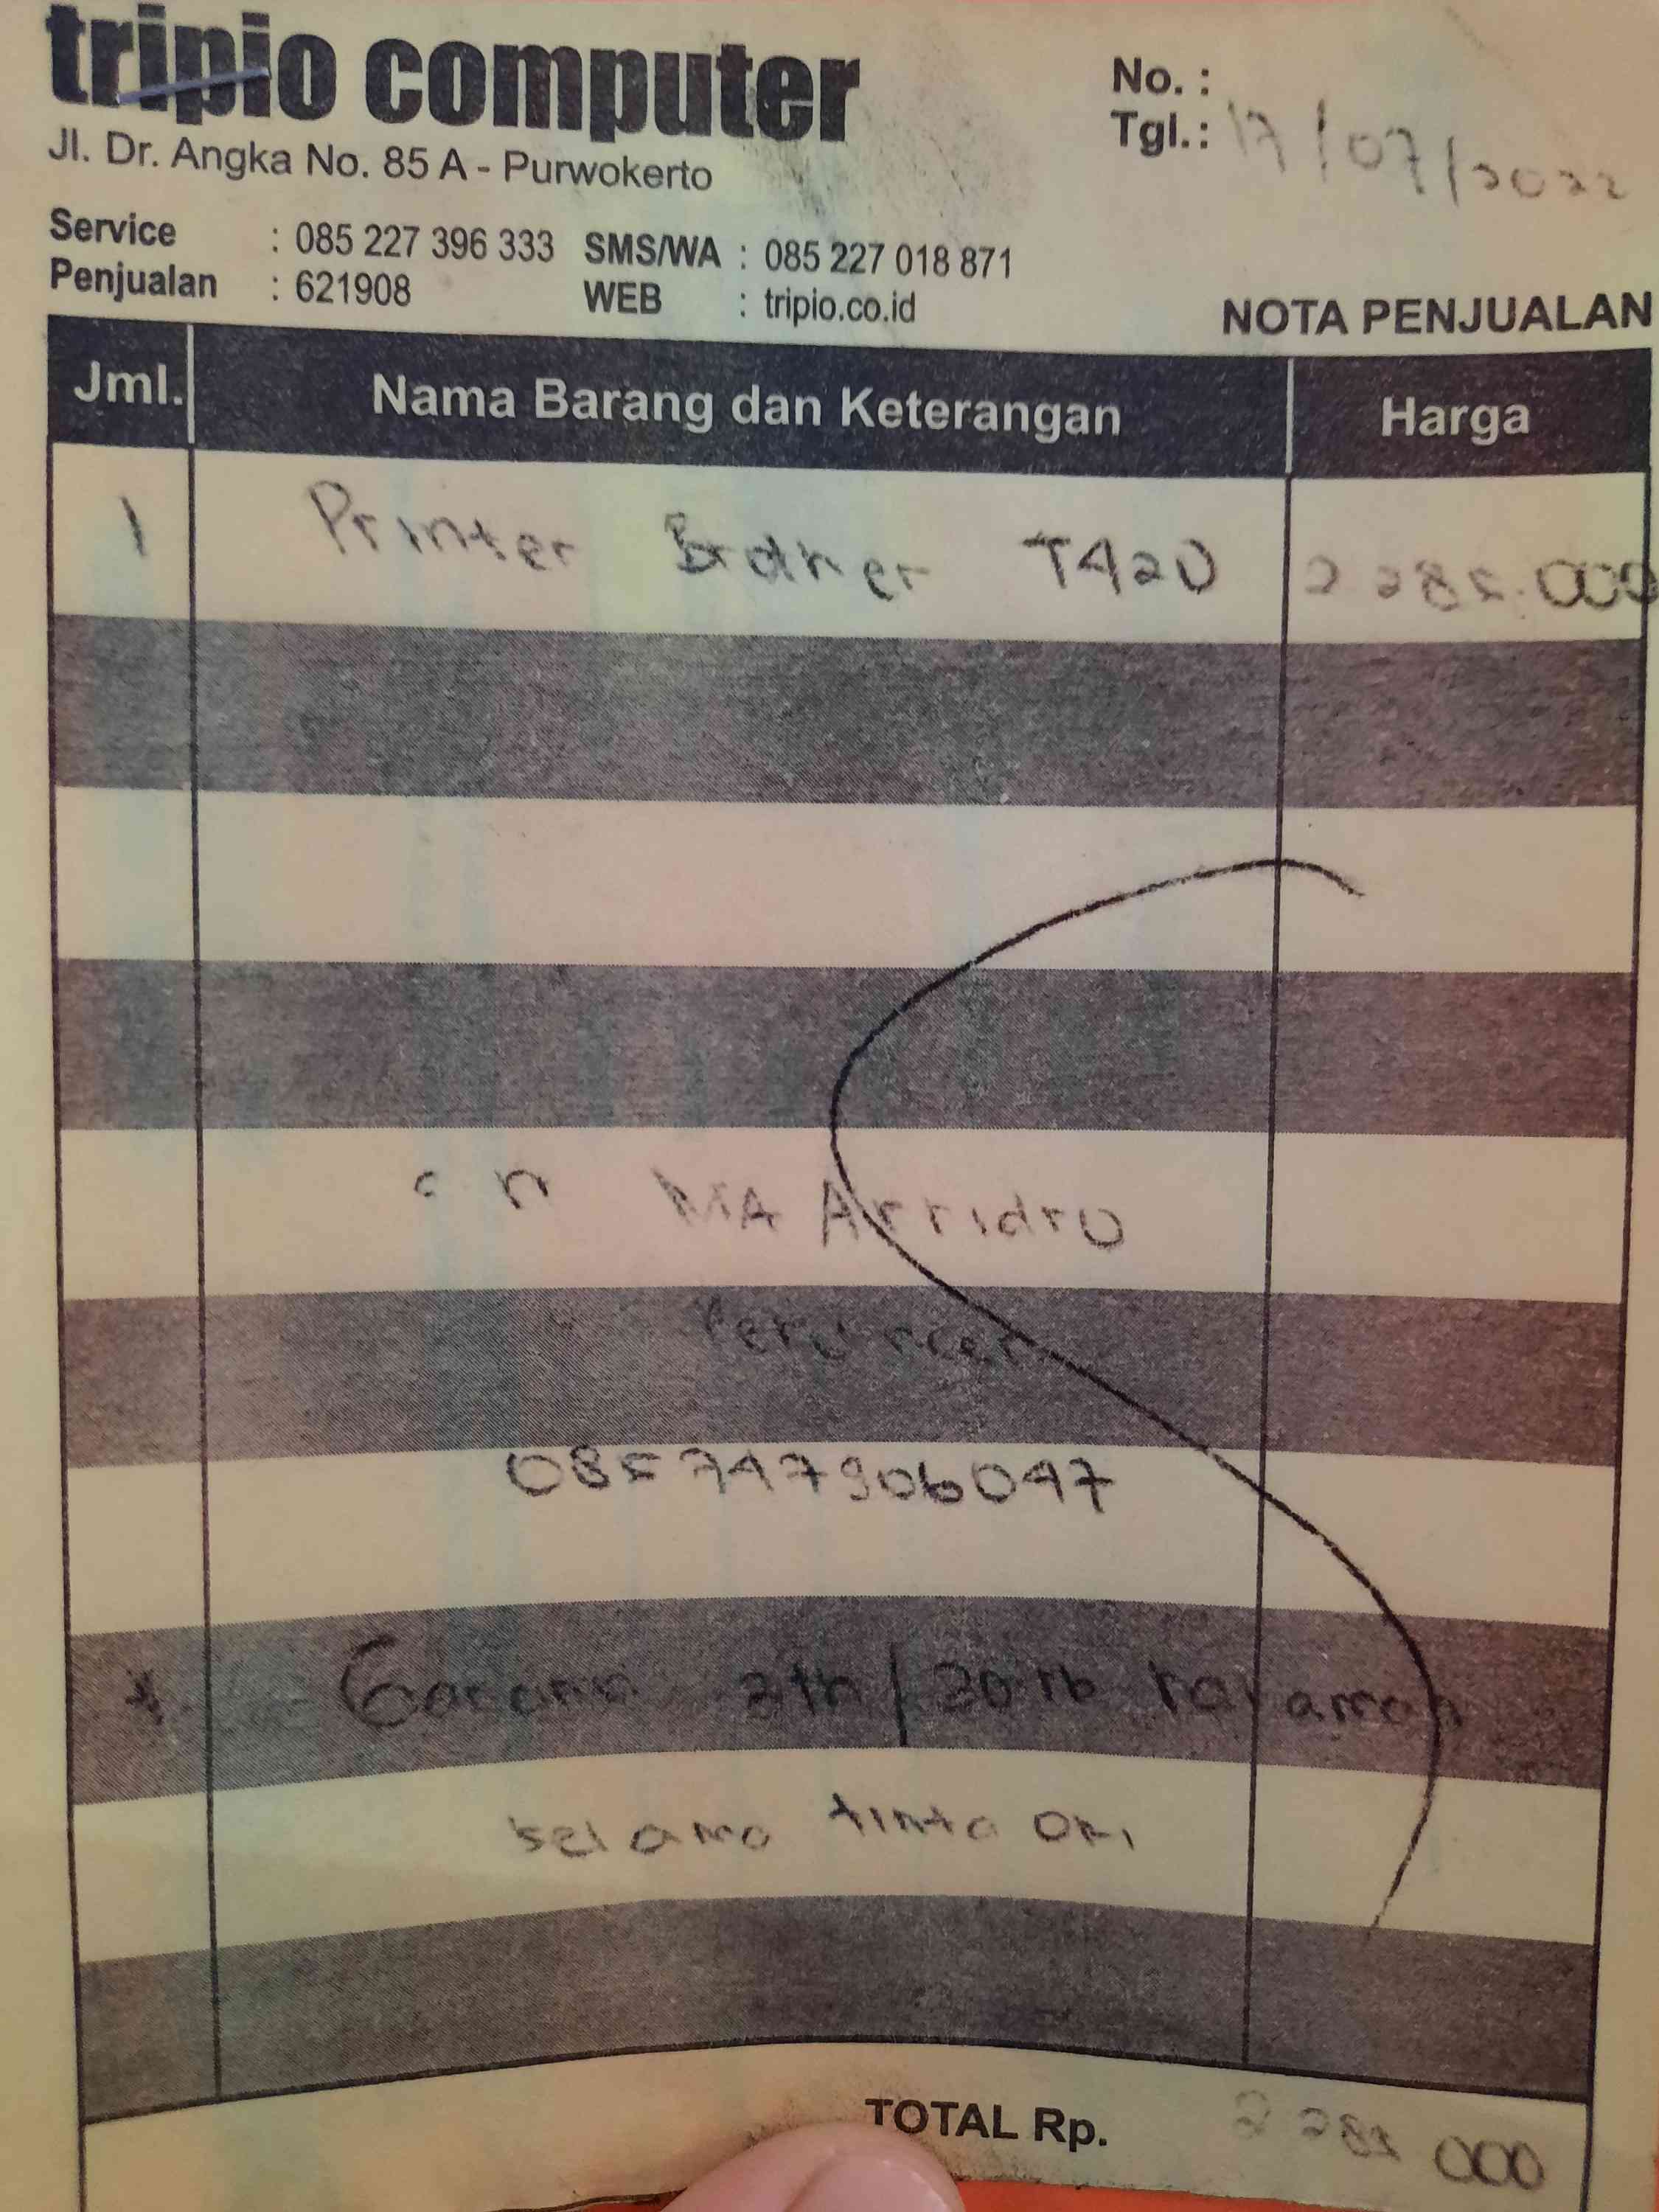 tripio computer
Jl. Dr. Angka No. 85 A - Purwokerto
No. :
Tgl.: 17/07/2022
Service : 085 227 396 333 SMS/WA : 085 227 018 871
Penjualan : 621908 WEB : tripio.co.id
NOTA PENJUALAN
Jml. Nama Barang dan Keterangan Harga
1 Printer Brother T420 2 285.000
an MA Arridho
085747906047
* Garansi 2th/30 rb
selama tinta ori
TOTAL Rp. 2 285 000